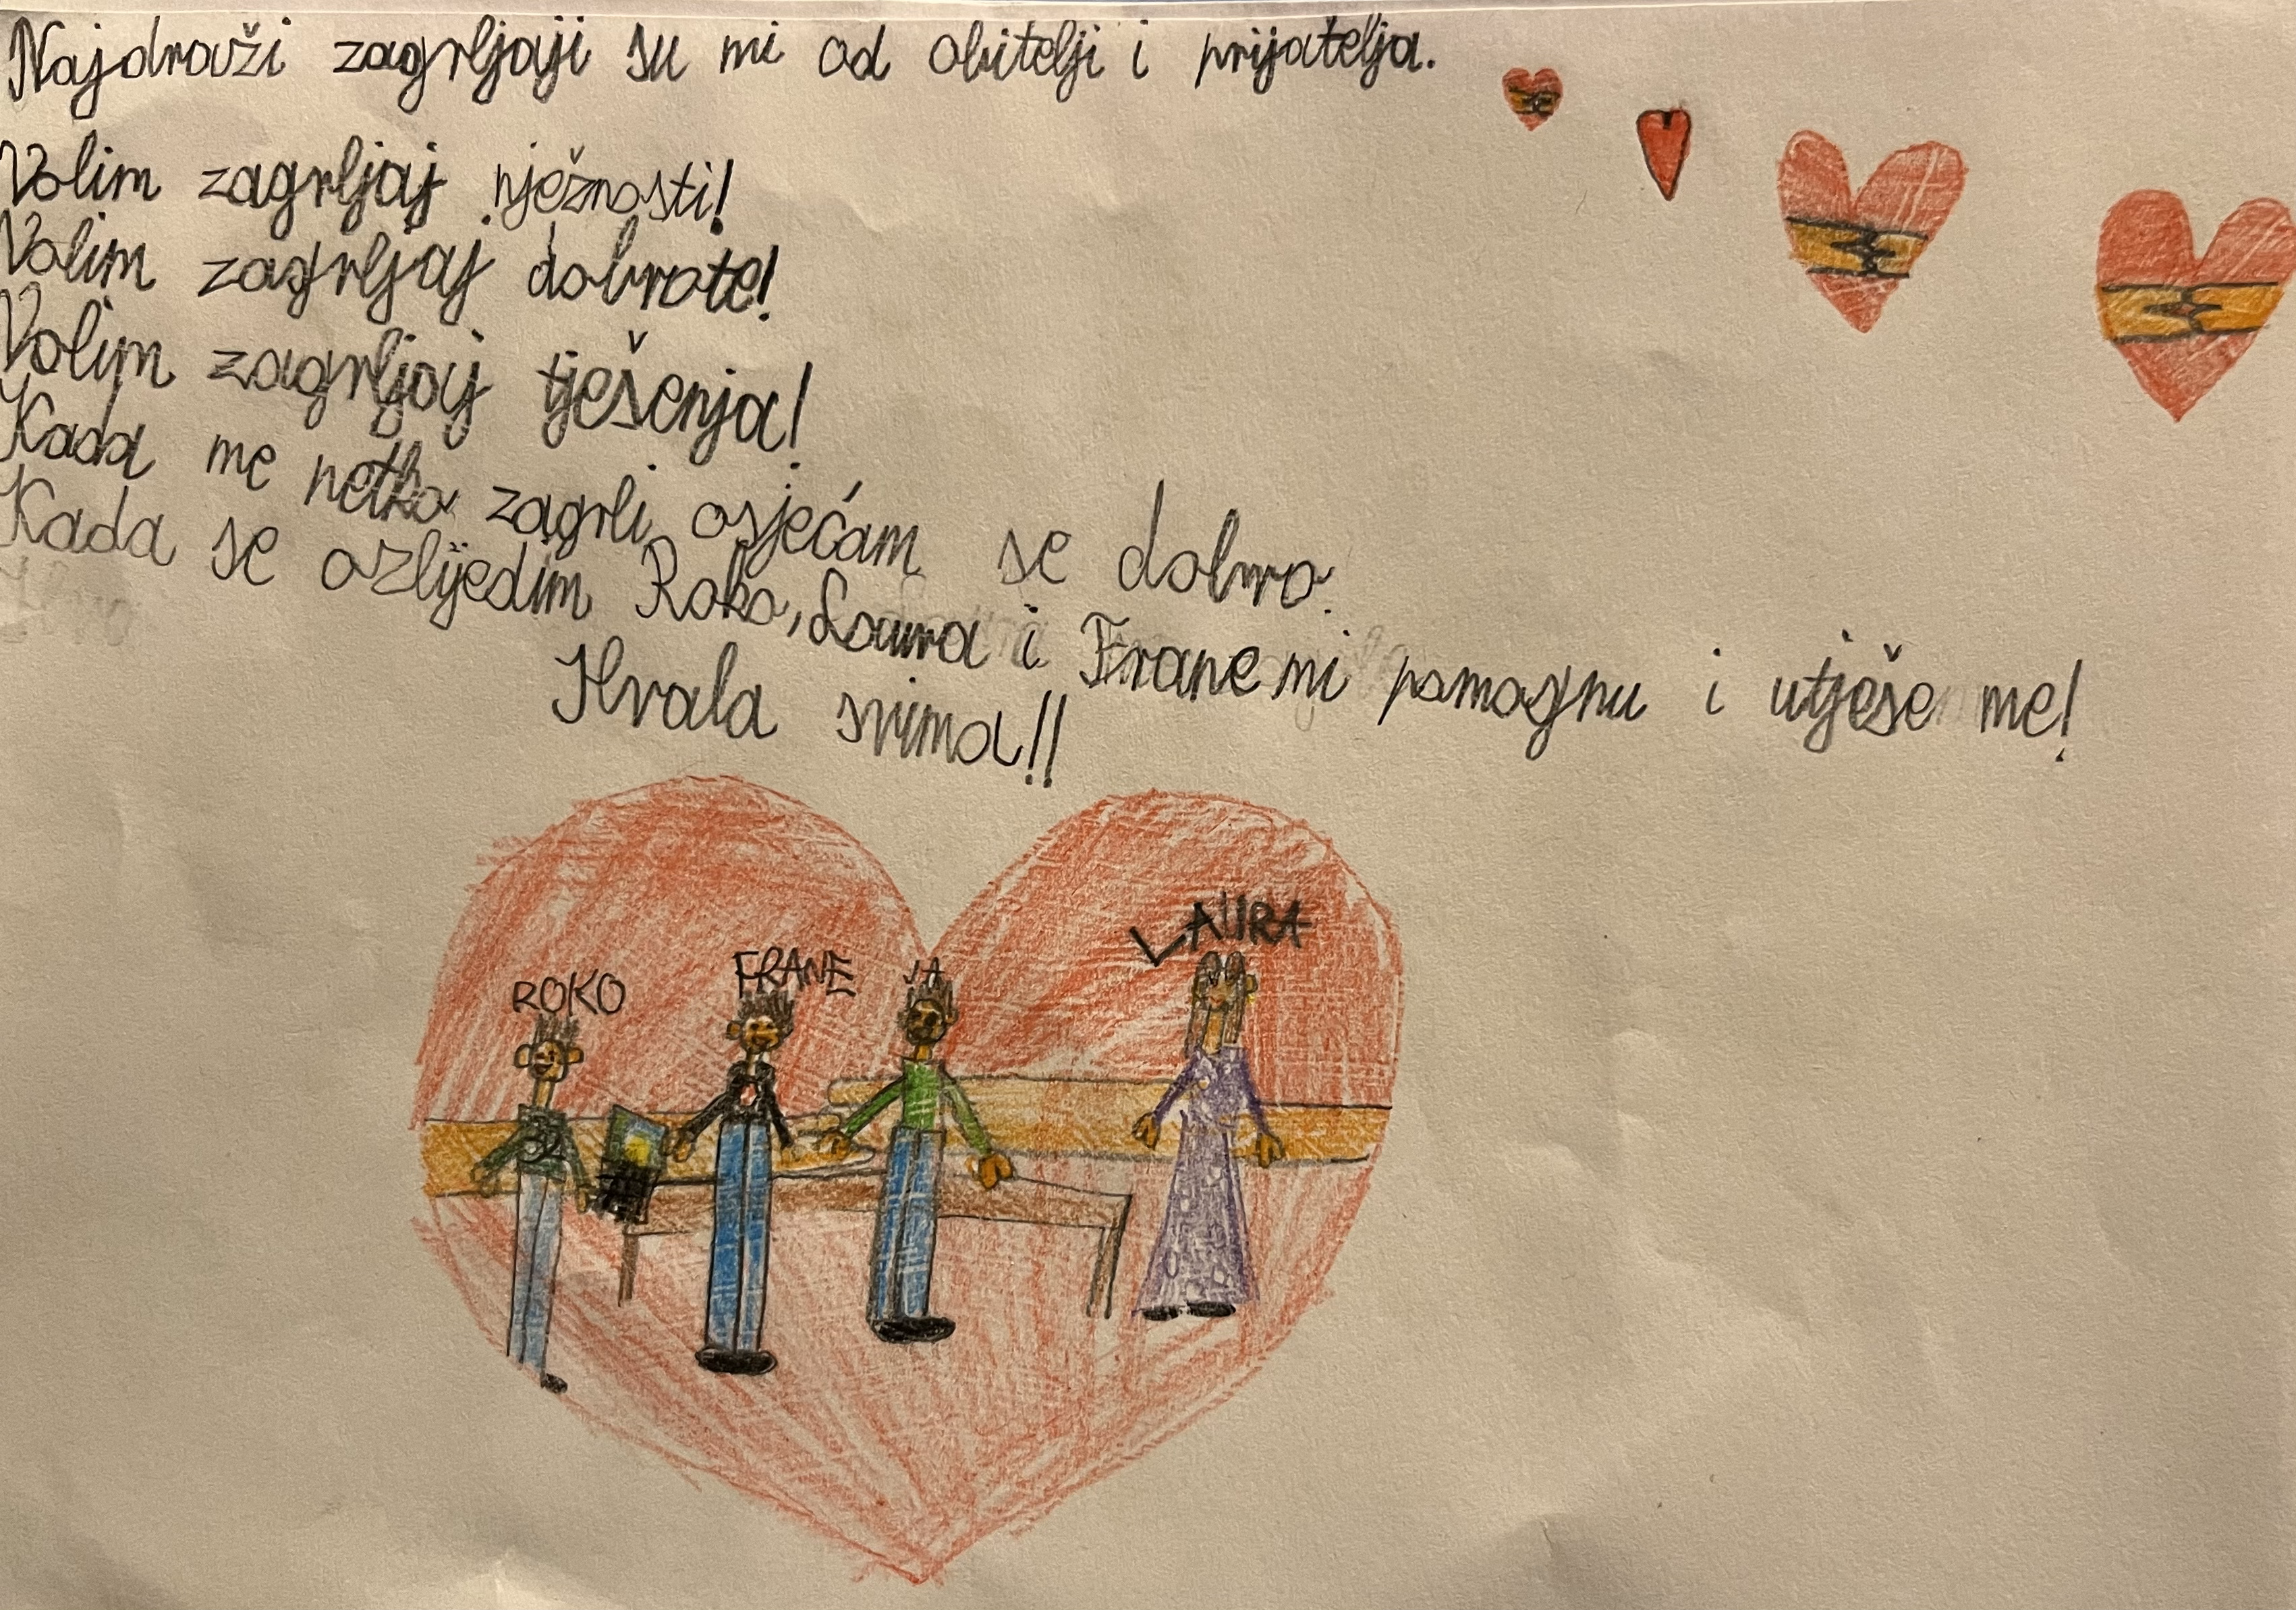 Najdraži zagrljaji su mi od obitelji i prijatelja.
Volim zagrljaj nježnosti!
Volim zagrljaj dobrote!
Volim zagrljaj tješenja!
Kada me netko zagrli osjećam se dobro.
Kada se ozlijedim Roko, Laura i Frane mi pomognu i utješe me!
Hvala svima!!
LAURA
ROKO FRANE JA
32